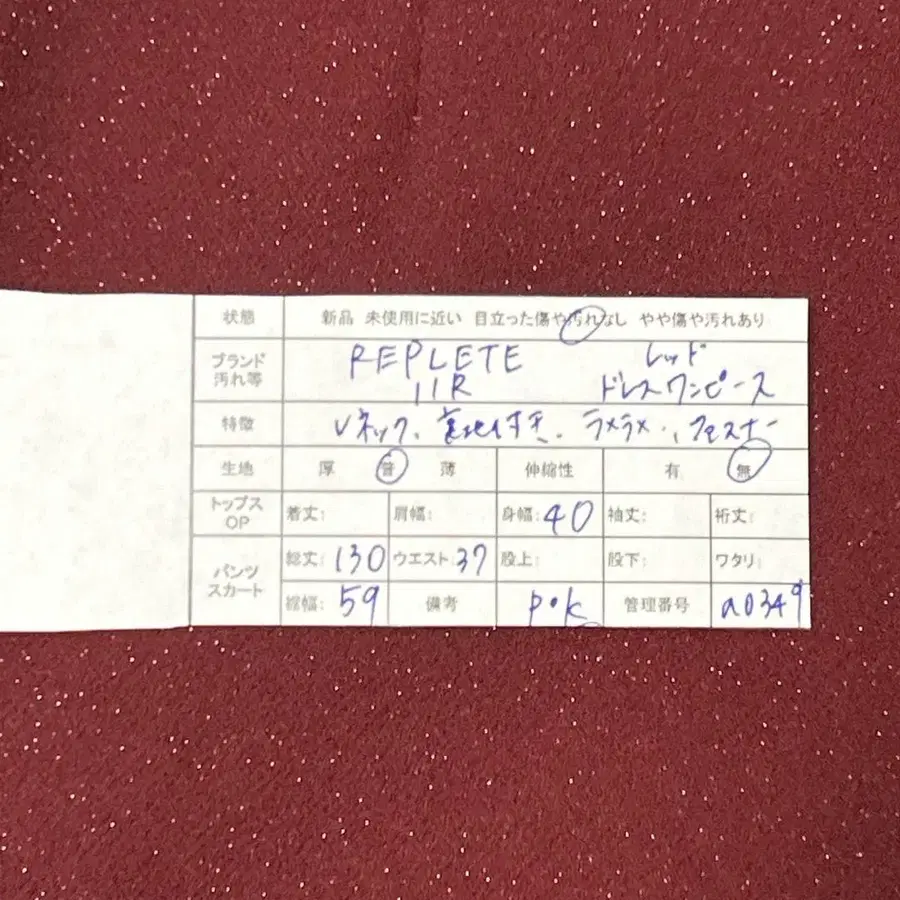 状態 新品 未使用に近い 目立った傷や汚れなし やや傷や汚れあり
ブランド 汚れ等 REPLETE レッド
11R ドレスワンピース
特徴 Vネック、裏地付き、ラメラメ、ファスナー
生地 厚 普 薄 伸縮性 有 無
トップス OP 着丈: 肩幅: 身幅: 40 袖丈: 裄丈:
パンツ スカート 総丈: 130 ウエスト: 37 股上: 股下: ワタリ:
裾幅: 59 備考 P・K 管理番号 a0349